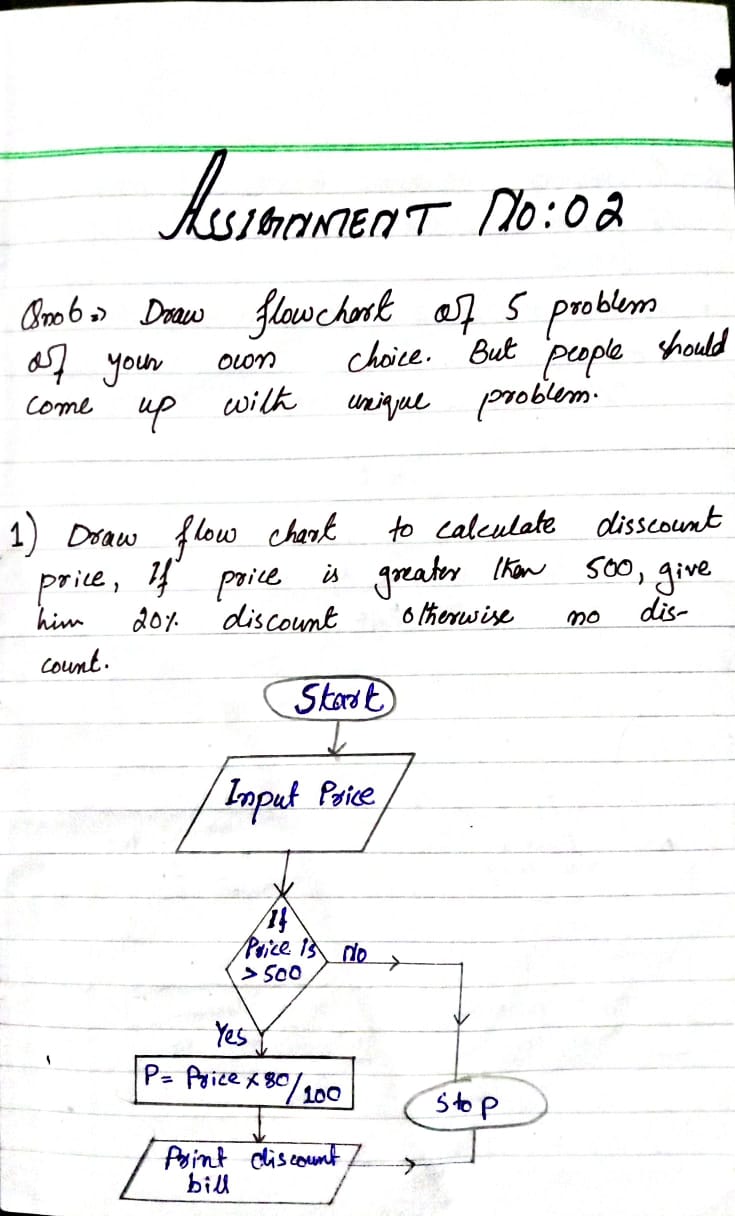 ASSIGNMENT No:02
Qno6 => Draw flowchart of 5 problem
of your own choice. But people should
come up with unique problem.
1) Draw flow chart to calculate disscount
price, If price is greater than 500, give
him 20% discount otherwise no dis-
count.
Start
Input Price
If
Price is
> 500
No
Yes
P = Price x 80/100
Stop
Print discount
bill